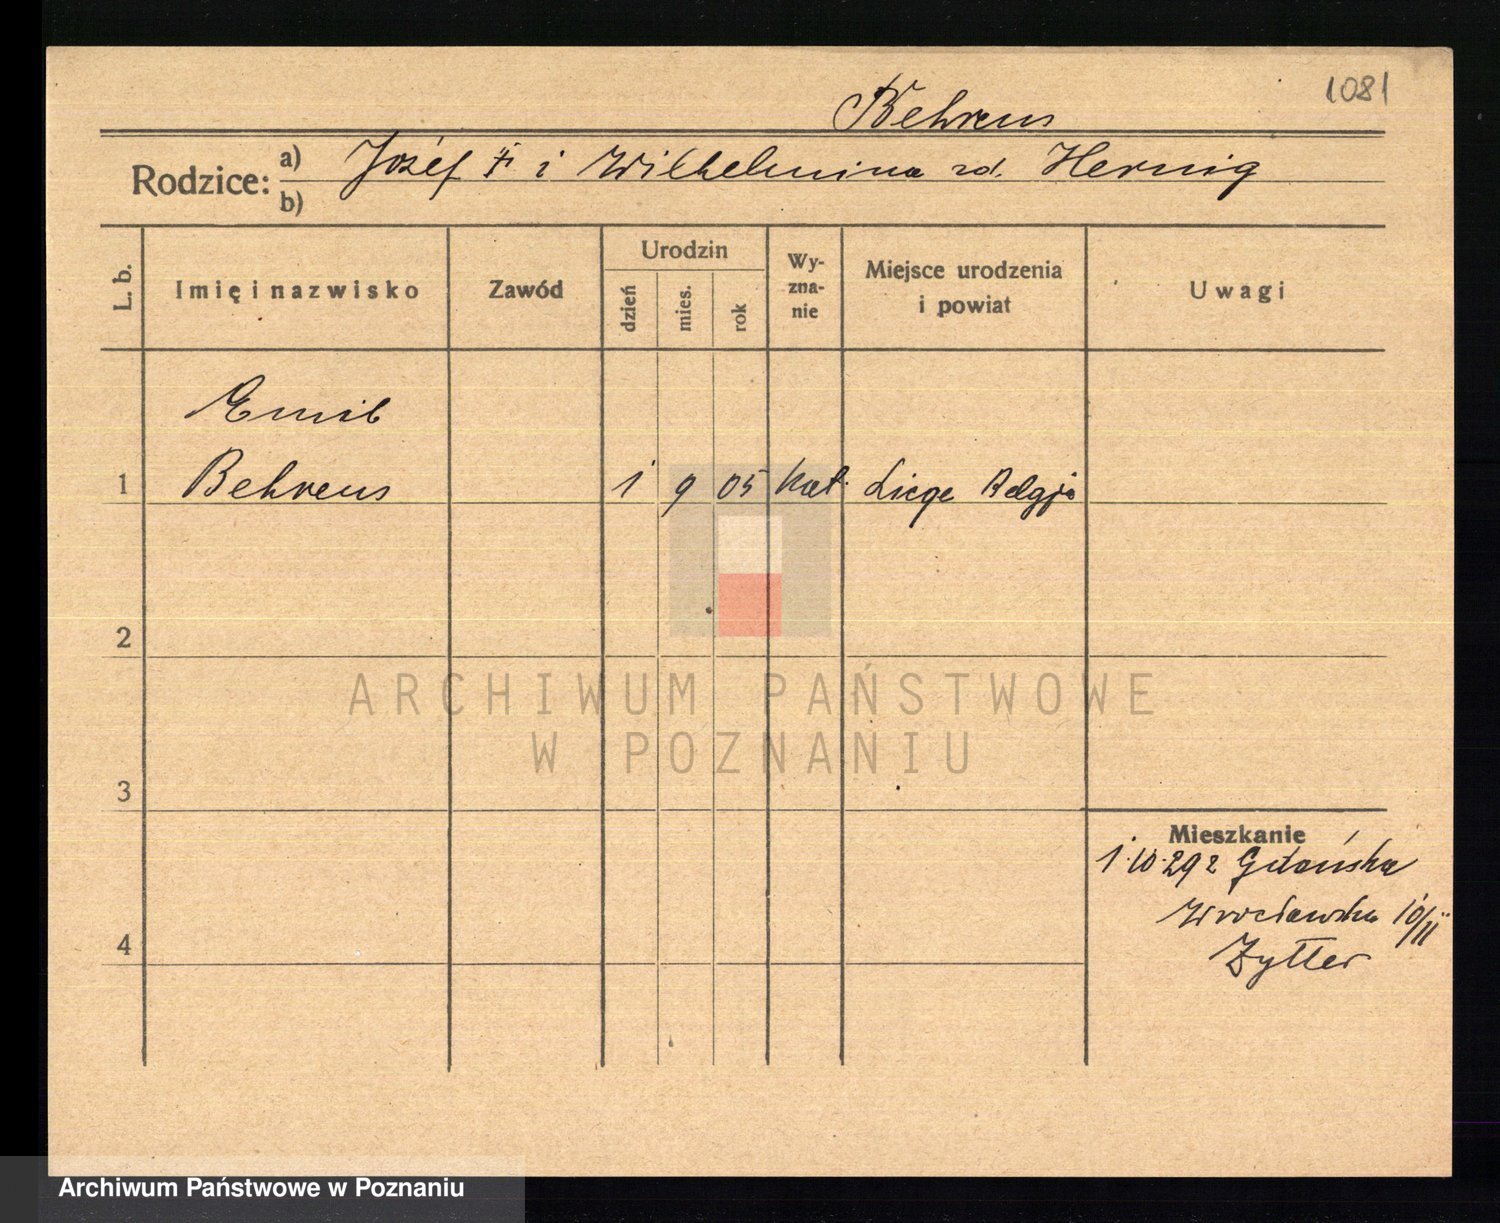 1081
Behrens
Rodzice: a) Józef i Wilhelmina zd. Hernig
b)
L. b.
Imię i nazwisko
Zawód
Urodzin
dzień
mies.
rok
Wy-
zna-
nie
Miejsce urodzenia
i powiat
Uwagi
Emil
1 Behrens 1 9 05 kat. Liege Belgja
2
ARCHIWUM PAŃSTWOWE
W POZNANIU
3
Mieszkanie
1.10.29 z Gdańska
4 Wrocławska 10/II
Zytler
Archiwum Państwowe w Poznaniu